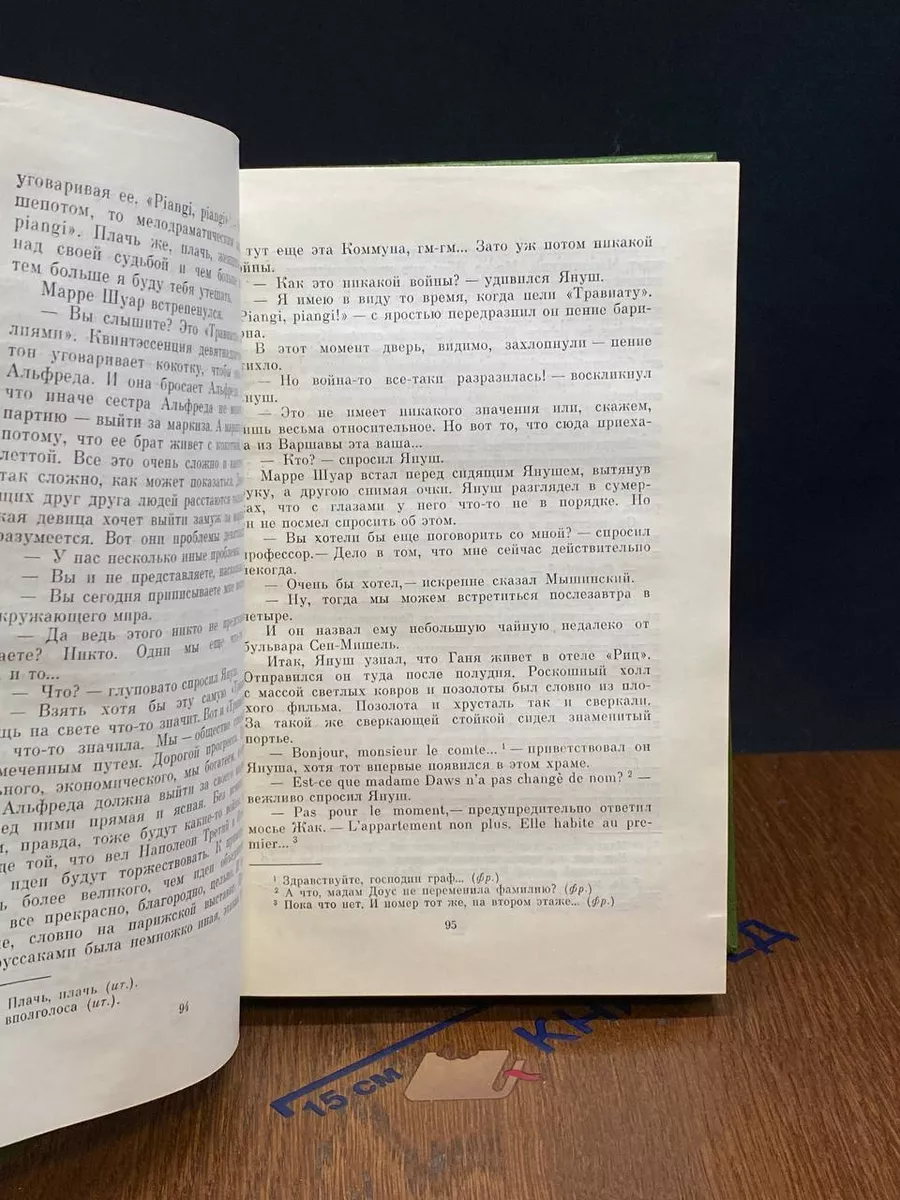 уговаривая ее. «Piangi, piangi»
шепотом, то мелодраматическим
piangi». Плачь же, плачь,
над своей судьбой и чем больше
тем больше я буду тебя утешать.
Марре Шуар встрепенулся.
— Вы слышите? Это
лиями». Квинтэссенция
тон уговаривает кокотку, чтобы
Альфреда. И она бросает Альфреда
что иначе сестра Альфреда не
партию — выйти за маркиза. А
потому, что ее брат живет с
леттой. Все это очень сложно и
так сложно, как может показаться.
щих друг друга людей расстаются
кая девица хочет выйти замуж за
разумеется. Вот они проблемы
— У нас несколько иные проблемы.
— Вы и не представляете,
— Вы сегодня приписываете мне
кружающего мира.
— Да ведь этого никто не
аете? Никто. Одни мы еще
и то...
— Что? — глуповато спросил Януш.
— Взять хотя бы эту самую
щь на свете что-то значит. Вот и
что-то значила. Мы — общество
меченным путем. Дорогой прогресса
ного, экономического, мы богатеем,
Альфреда должна выйти за своего
ед ними прямая и ясная. Без
и, правда, тоже будут какие-то
де той, что вел Наполеон Третий в
идеи будут торжествовать. К
ь более великого, чем идеи
все прекрасно, благородно,
е, словно на парижской выставке.
руссаками была немножко иная,
Плачь, плачь (ит.).
вполголоса (ит.).
94
тут еще эта Коммуна, гм-гм... Зато уж потом никакой
ойны.
— Как это никакой войны? — удивился Януш.
— Я имею в виду то время, когда пели «Травиату».
Piangi, piangi!» — с яростью передразнил он пение бари-
она.
В этот момент дверь, видимо, захлопнули — пение
тихло.
— Но война-то все-таки разразилась! — воскликнул
нуш.
— Это не имеет никакого значения или, скажем,
ишь весьма относительное. Но вот то, что сюда приеха-
а из Варшавы эта ваша...
— Кто? — спросил Януш.
Марре Шуар встал перед сидящим Янушем, вытянув
уку, а другою снимая очки. Януш разглядел в сумер-
ах, что с глазами у него что-то не в порядке. Но
н не посмел спросить об этом.
— Вы хотели бы еще поговорить со мной? — спросил
профессор.— Дело в том, что мне сейчас действительно
некогда.
— Очень бы хотел,— искренне сказал Мышинский.
— Ну, тогда мы можем встретиться послезавтра в
четыре.
И он назвал ему небольшую чайную недалеко от
бульвара Сен-Мишель.
Итак, Януш узнал, что Ганя живет в отеле «Риц».
Отправился он туда после полудня. Роскошный холл
с массой светлых ковров и позолоты был словно из пло-
хого фильма. Позолота и хрусталь так и сверкали.
За такой же сверкающей стойкой сидел знаменитый
портье.
— Bonjour, monsieur le comte... ¹ — приветствовал он
Януша, хотя тот впервые появился в этом храме.
— Est-ce que madame Daws n'a pas changè de nom? ² —
вежливо спросил Януш.
— Pas pour le moment,— предупредительно ответил
мосье Жак. — L'appartement non plus. Elle habite au pre-
mier... ³
¹ Здравствуйте, господин граф... (фр.)
² А что, мадам Доус не переменила фамилию? (фр.)
³ Пока что нет. И номер тот же, на втором этаже... (фр.)
95
15 см